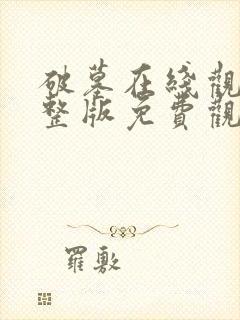 破墓在綫觀
整版免費觀
羅敷